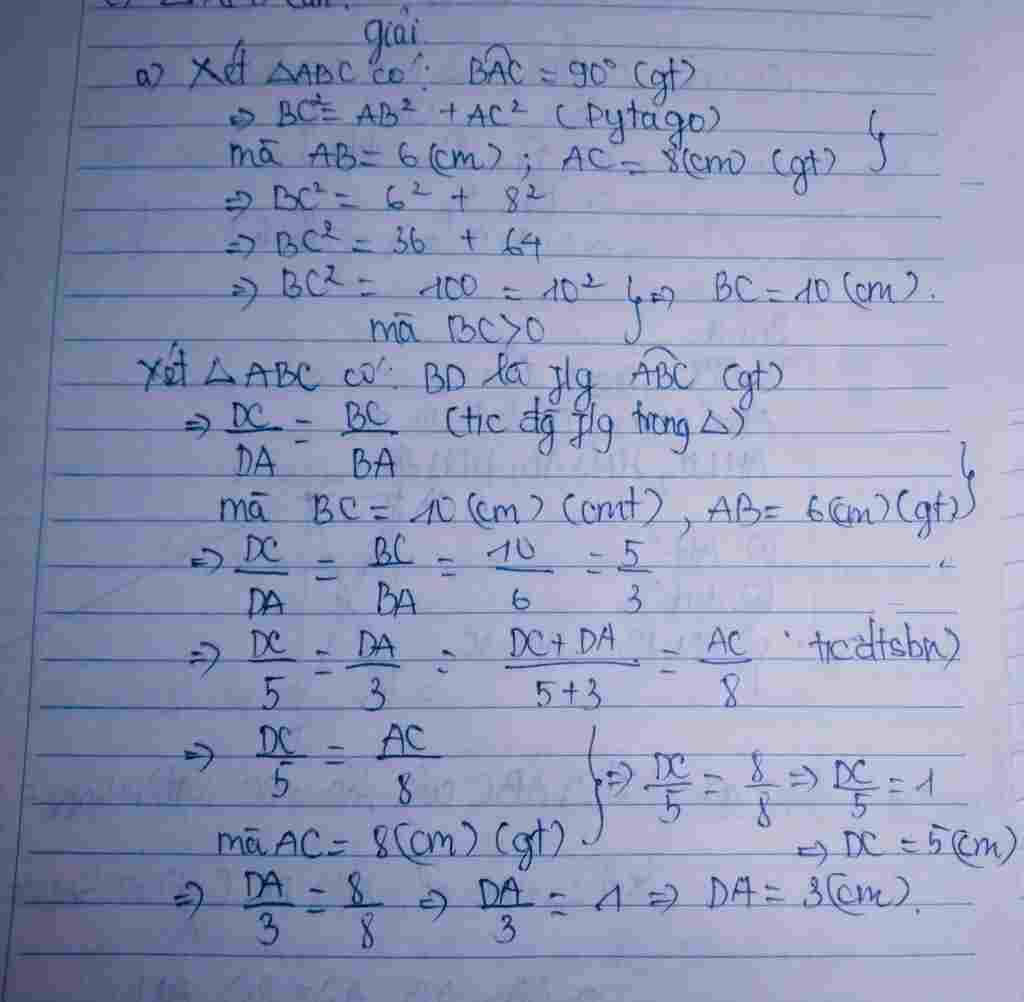 giải
a) Xét △ABC có: BAC = 90° (gt)
⇒ BC² = AB² + AC² (Pytago)
mà AB = 6(cm); AC = 8(cm) (gt) }
⇒ BC² = 6² + 8²
⇒ BC² = 36 + 64
⇒ BC² = 100 = 10² } ⇒ BC = 10 (cm).
mà BC>0
Xét △ABC có: BD là p/g ABC (gt)
⇒ DC/DA = BC/BA (t/c đg p/g trong △)
mà BC = 10(cm) (cmt), AB = 6(cm) (gt) }
⇒ DC/DA = BC/BA = 10/6 = 5/3
⇒ DC/5 = DA/3 = DC + DA/5+3 = AC/8 t/cdtsbn)
⇒ DC/5 = AC/8 } ⇒ DC/5 = 8/8 ⇒ DC/5 = 1
mà AC = 8(cm) (gt) ⇒ DC = 5(cm)
⇒ DA/3 = 8/8 ⇒ DA/3 = 1 ⇒ DA = 3(cm).